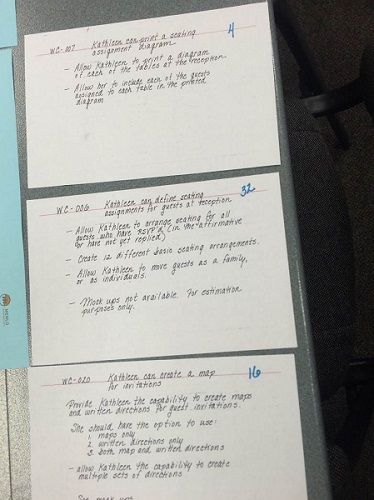 WC-007 Kathleen can print a seating 4
assignment diagram
- Allow Kathleen to print a diagram
of each of the tables at the reception
- Allow her to include each of the guests
assigned to each table in the printed
diagram
WC-006 Kathleen can define seating 32
assignments for guests at reception
- Allow Kathleen to arrange seating for all
guests who have RSVP'd (in the affirmative
or have not yet replied)
- Create 12 different basic seating arrangements.
- Allow Kathleen to move guests as a family,
or as individuals.
- Mock ups not available. For estimation
purposes only.
WC-020 Kathleen can create a map 16
for invitations
Provide Kathleen the capability to create maps
and written directions for guest invitations.
She should have the option to use:
1. maps only
2. written directions only
3. both map and written directions
- allow Kathleen the capability to create
multiple sets of directions